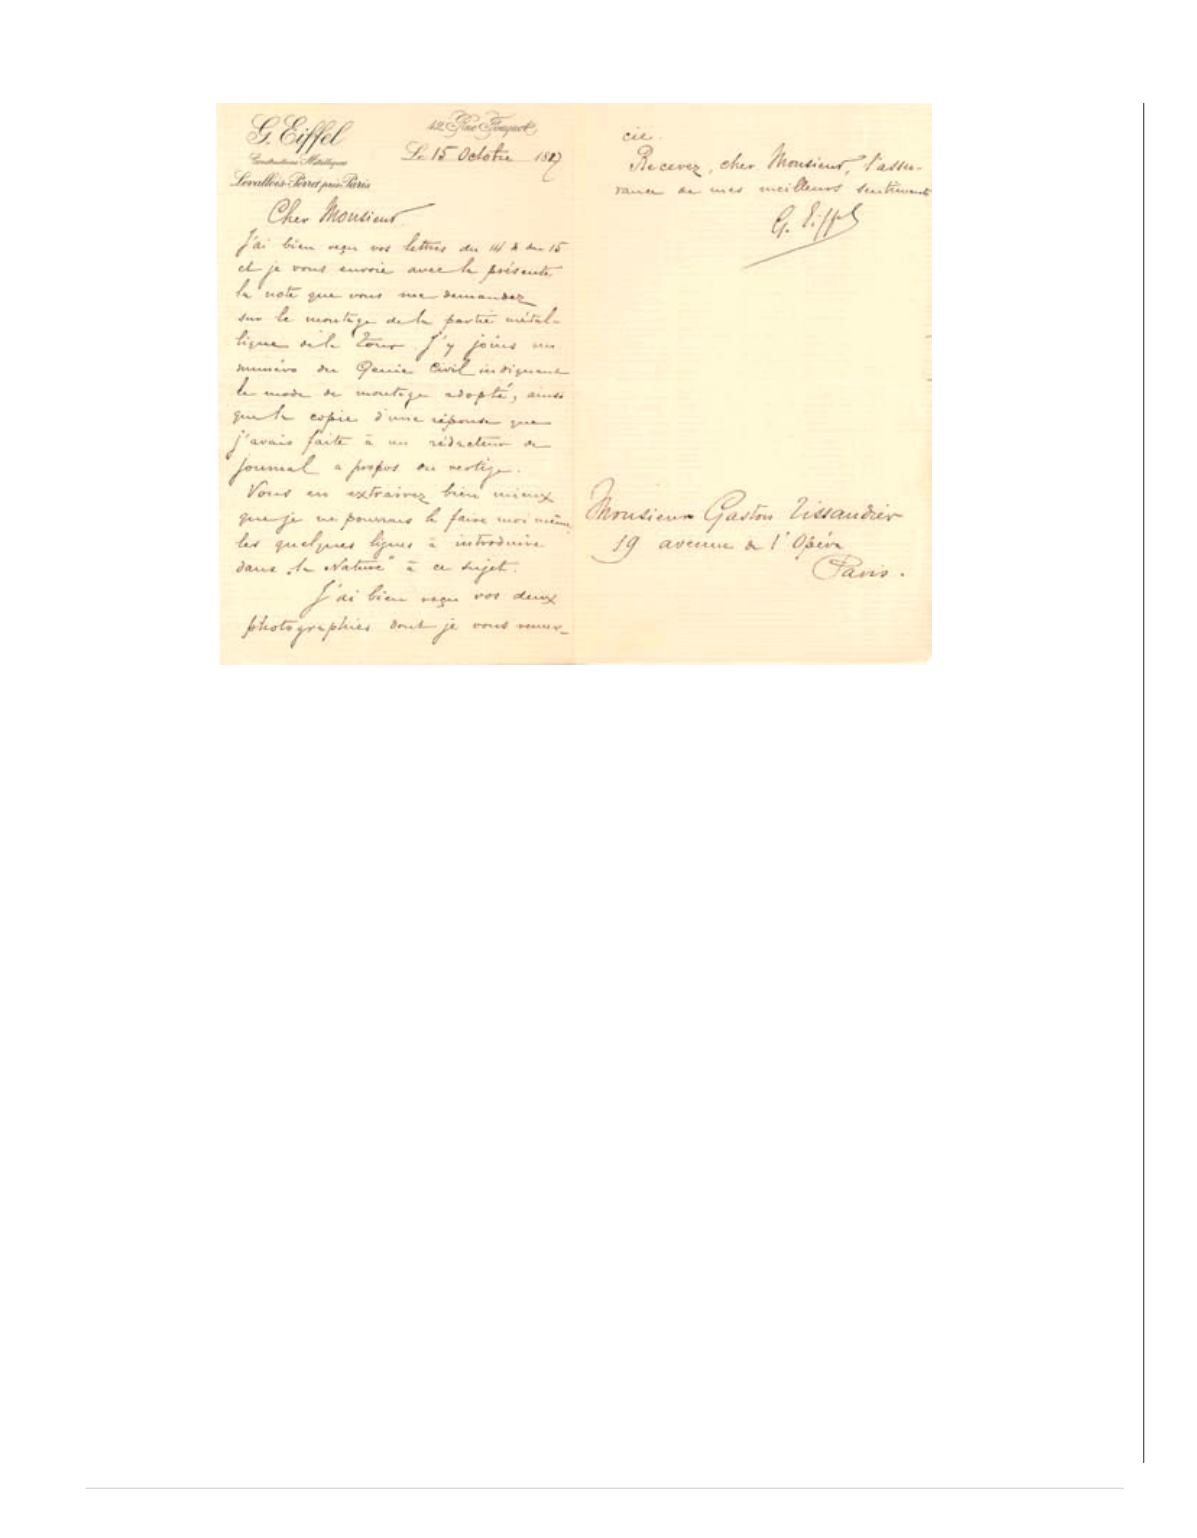 G. Eiffel
Constructions Métalliques
Levallois-Perret près Paris
42 Rue Fouquet
Le 15 Octobre 1887
Cher Monsieur
J'ai bien reçu vos lettres du 14 & du 15
et je vous envoie avec la présente
la note que vous me demandez
sur le montage de la partie métal-
lique de la Tour. J'y joins un
numéro du Génie Civil indiquant
le mode de montage adopté, ainsi
que la copie d'une réponse que
j'avais faite à un rédacteur de
journal a propos du vertige.
Vous en extrairez bien mieux
que je ne pourrais le faire moi même
les quelques lignes à introduire
dans "la Nature" à ce sujet.
J'ai bien reçu vos deux
photographies dont je vous remer-
cie.
Recevez, cher Monsieur, l'assu-
rance de mes meilleurs sentiments
G. Eiffel
Monsieur Gaston Tissandier
19 avenue de l'Opéra
Paris.